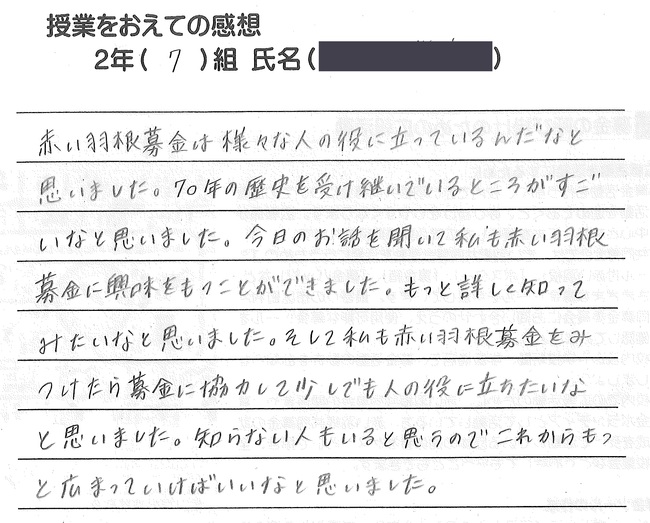 授業をおえての感想
2年(7)組 氏名( )
赤い羽根募金は様々な人の役に立っているんだなと
思いました。70年の歴史を受け継いでいるところがすご
いなと思いました。今日のお話を聞いて私も赤い羽根
募金に興味をもつことができました。もっと詳しく知って
みたいなと思いました。そして私も赤い羽根募金をみ
つけたら募金に協力して少しでも人の役に立ちたいな
と思いました。知らない人もいると思うのでこれからもっ
と広まっていけばいいなと思いました。